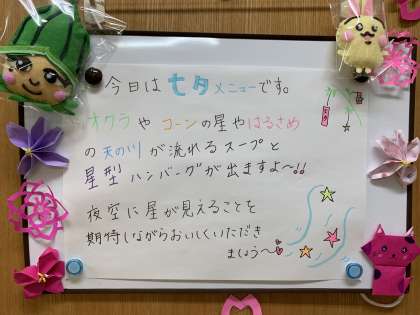 今日は七夕メニューです。
オクラやコーンの星やはるさめ
の天の川が流れるスープと
星型ハンバーグが出ますよ〜!!
夜空に星が見えることを
期待しながらおいしくいただき
ましょう〜